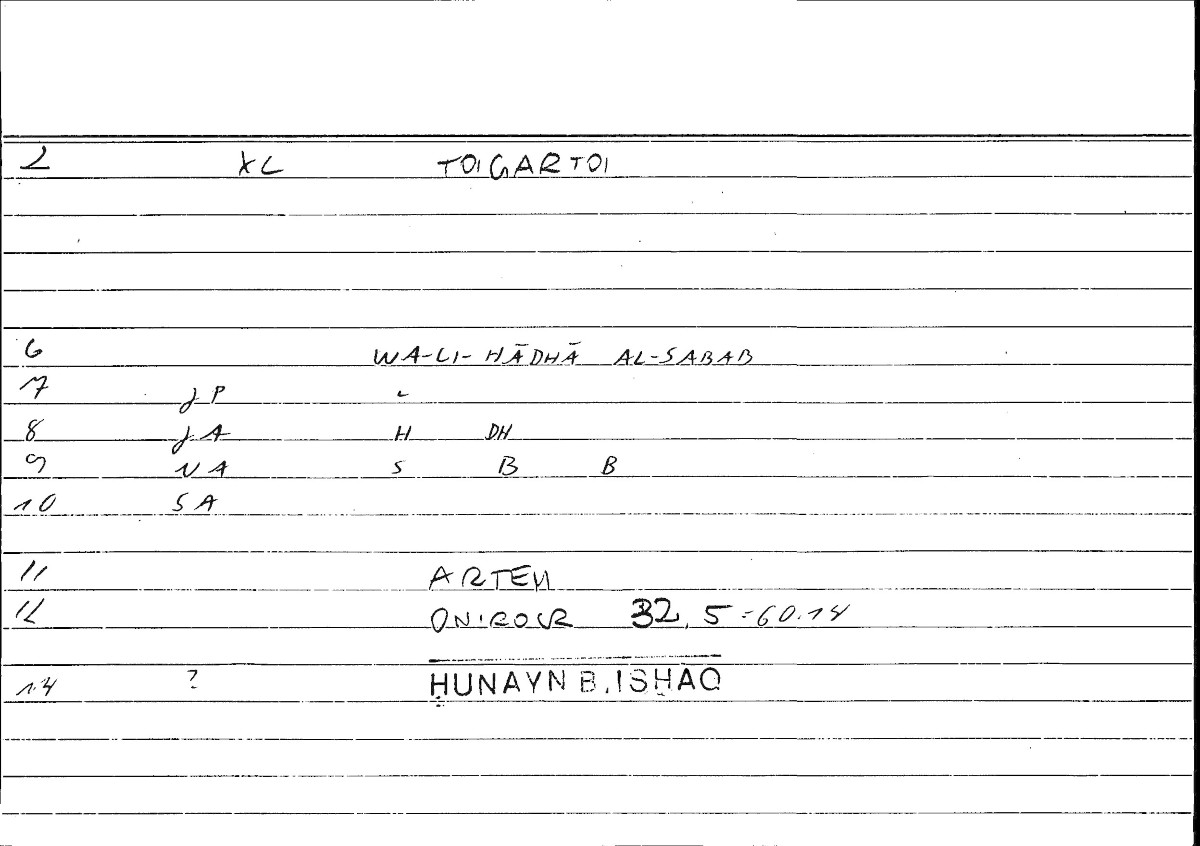 2 XL TOIGARTOI
6 WA-LI-HĀDHĀ AL-SABAB
7 JP L
8 JA H DH
9 NA S B B
10 SA
11 ARTEM
12 ONIROCR 32, 5 = 60.14
14 ? ḤUNAYN B. ISḤAQ